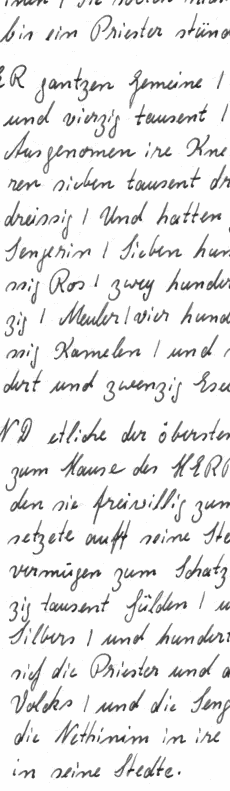 bis ein Priester stünd
ER gantzen Gemeine |
und vierzig tausent |
Ausgenomen ire Kne
ren sieben tausent dr
dreissig | Und hatten
Sengerin | Sieben hun
ssig Ros | zwey hunder
zig | Meuler | vier hund
ssig Kamelen | und
dert und zwenzig Esel
ND etliche der öbersten
zum Hause des HERR
den sie freiwillig zum
setzete auff seine Ste
vermügen zum Schatz
zig tausent Gülden | u
Silbers | und hundert
sich die Priester und d
Volcks | und die Seng
die Nethinim in ire
in seine Stedte.